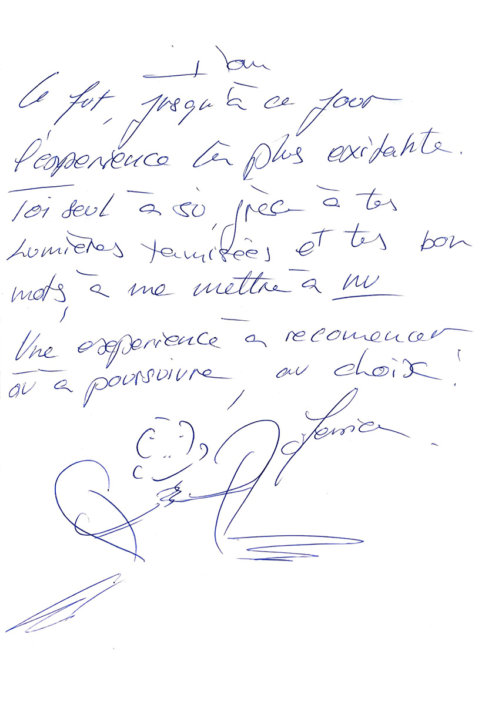 Ce fut, jusqu'à ce jour
l'experience la plus exitante.
Toi seul a su, grâce à tes
Lumières tamisées et tes bon
mots, à me mettre à nu
Une experience a recomencer
ou a poursuivre, au choix!